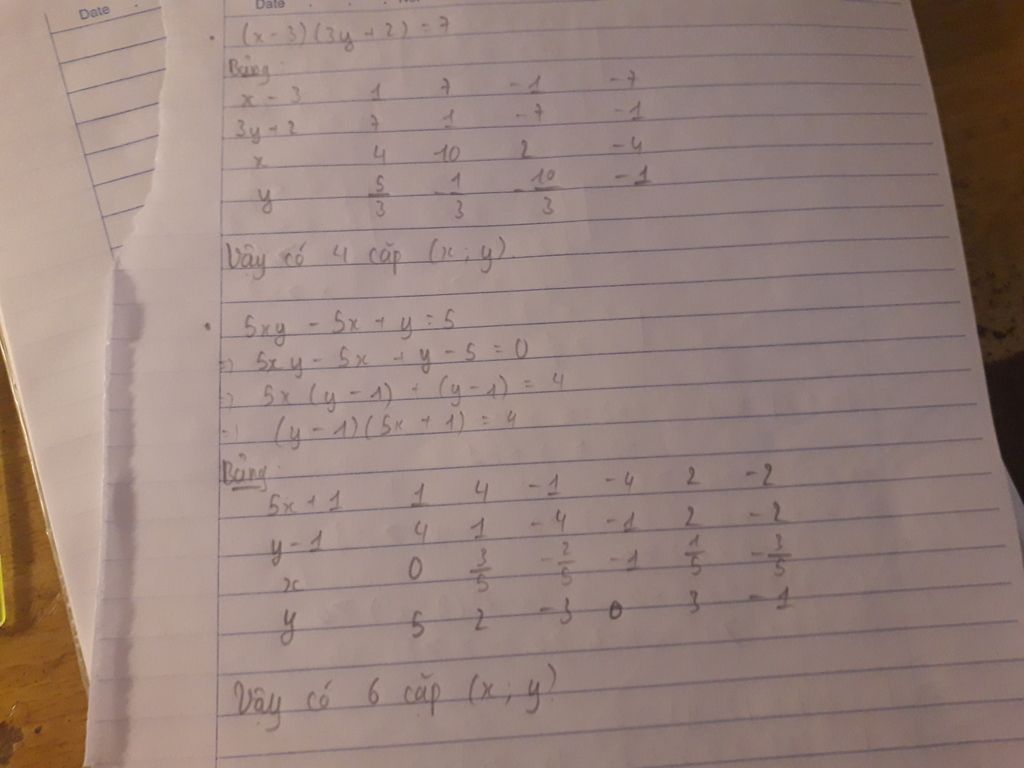 Date
Date . . . No.
(x - 3)(3y + 2) = 7
Bảng:
x - 3 1 7 -1 -7
3y + 2 7 1 -7 -1
x 4 10 2 -4
y 5/3 -1/3 -10/3 -1
Vậy có 4 cặp (x; y).
5xy - 5x + y = 5
=> 5xy - 5x + y - 5 = 0
=> 5x(y - 1) + (y - 1) = 4
=> (y - 1)(5x + 1) = 4
Bảng:
5x + 1 1 4 -1 -4 2 -2
y - 1 4 1 -4 -1 2 -2
x 0 3/5 -2/5 -1 1/5 -3/5
y 5 2 -3 0 3 -1
Vậy có 6 cặp (x; y)